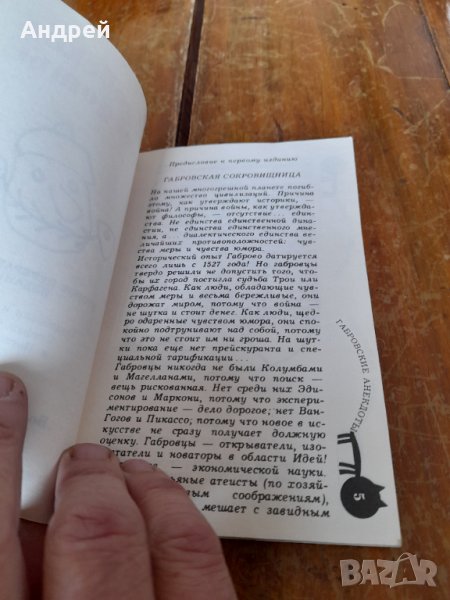 Андрей
Предисловие к первому изданию
ГАБРОВСКАЯ СОКРОВИЩНИЦА
На нашей многогрешной планете погиб-
ло множество цивилизаций. Причина
этому, как утверждают историки, —
война! А причина войны, как утвержда-
ют философы, — отсутствие... един-
ства. Не единства единственной динас-
тии, не единства единственного мне-
ния, а — диалектического единства ве-
личайших противоположностей: чувс-
тва меры и чувства юмора.
Исторический опыт Габрово датируется
всего лишь с 1527 года! Но габровцы
твердо решили не допустить того, что-
бы их город постигла судьба Трои или
Карфагена. Как люди, обладающие чувс-
твом меры и весьма бережливые, они
дорожат миром, потому что война —
не шутка и стоит денег. Как люди, щед-
ро одаренные чувством юмора, они спо-
койно подтрунивают над собой, потому
что это не стоит им ни гроша. На шут-
ки пока еще нет прейскуранта и спе-
циальной тарификации...
Габровцы никогда не были Колумбами
и Магелланами, потому что поиск —
вещь рискованная. Нет среди них Эди-
сонов и Маркони, потому что экспери-
ментирование — дело дорогое; нет Ван-
Гогов и Пикассо; потому что новое в ис-
кусстве не сразу получает должную
оценку. Габровцы — открыватели, изо-
татели и новаторы в области Идей!
— экономической науки.
ьяные атеисты (по хозяй-
ым соображениям),
мешает с завидным
ГАБРОВСКИЕ АНЕКДОТЫ
5
BAZAR